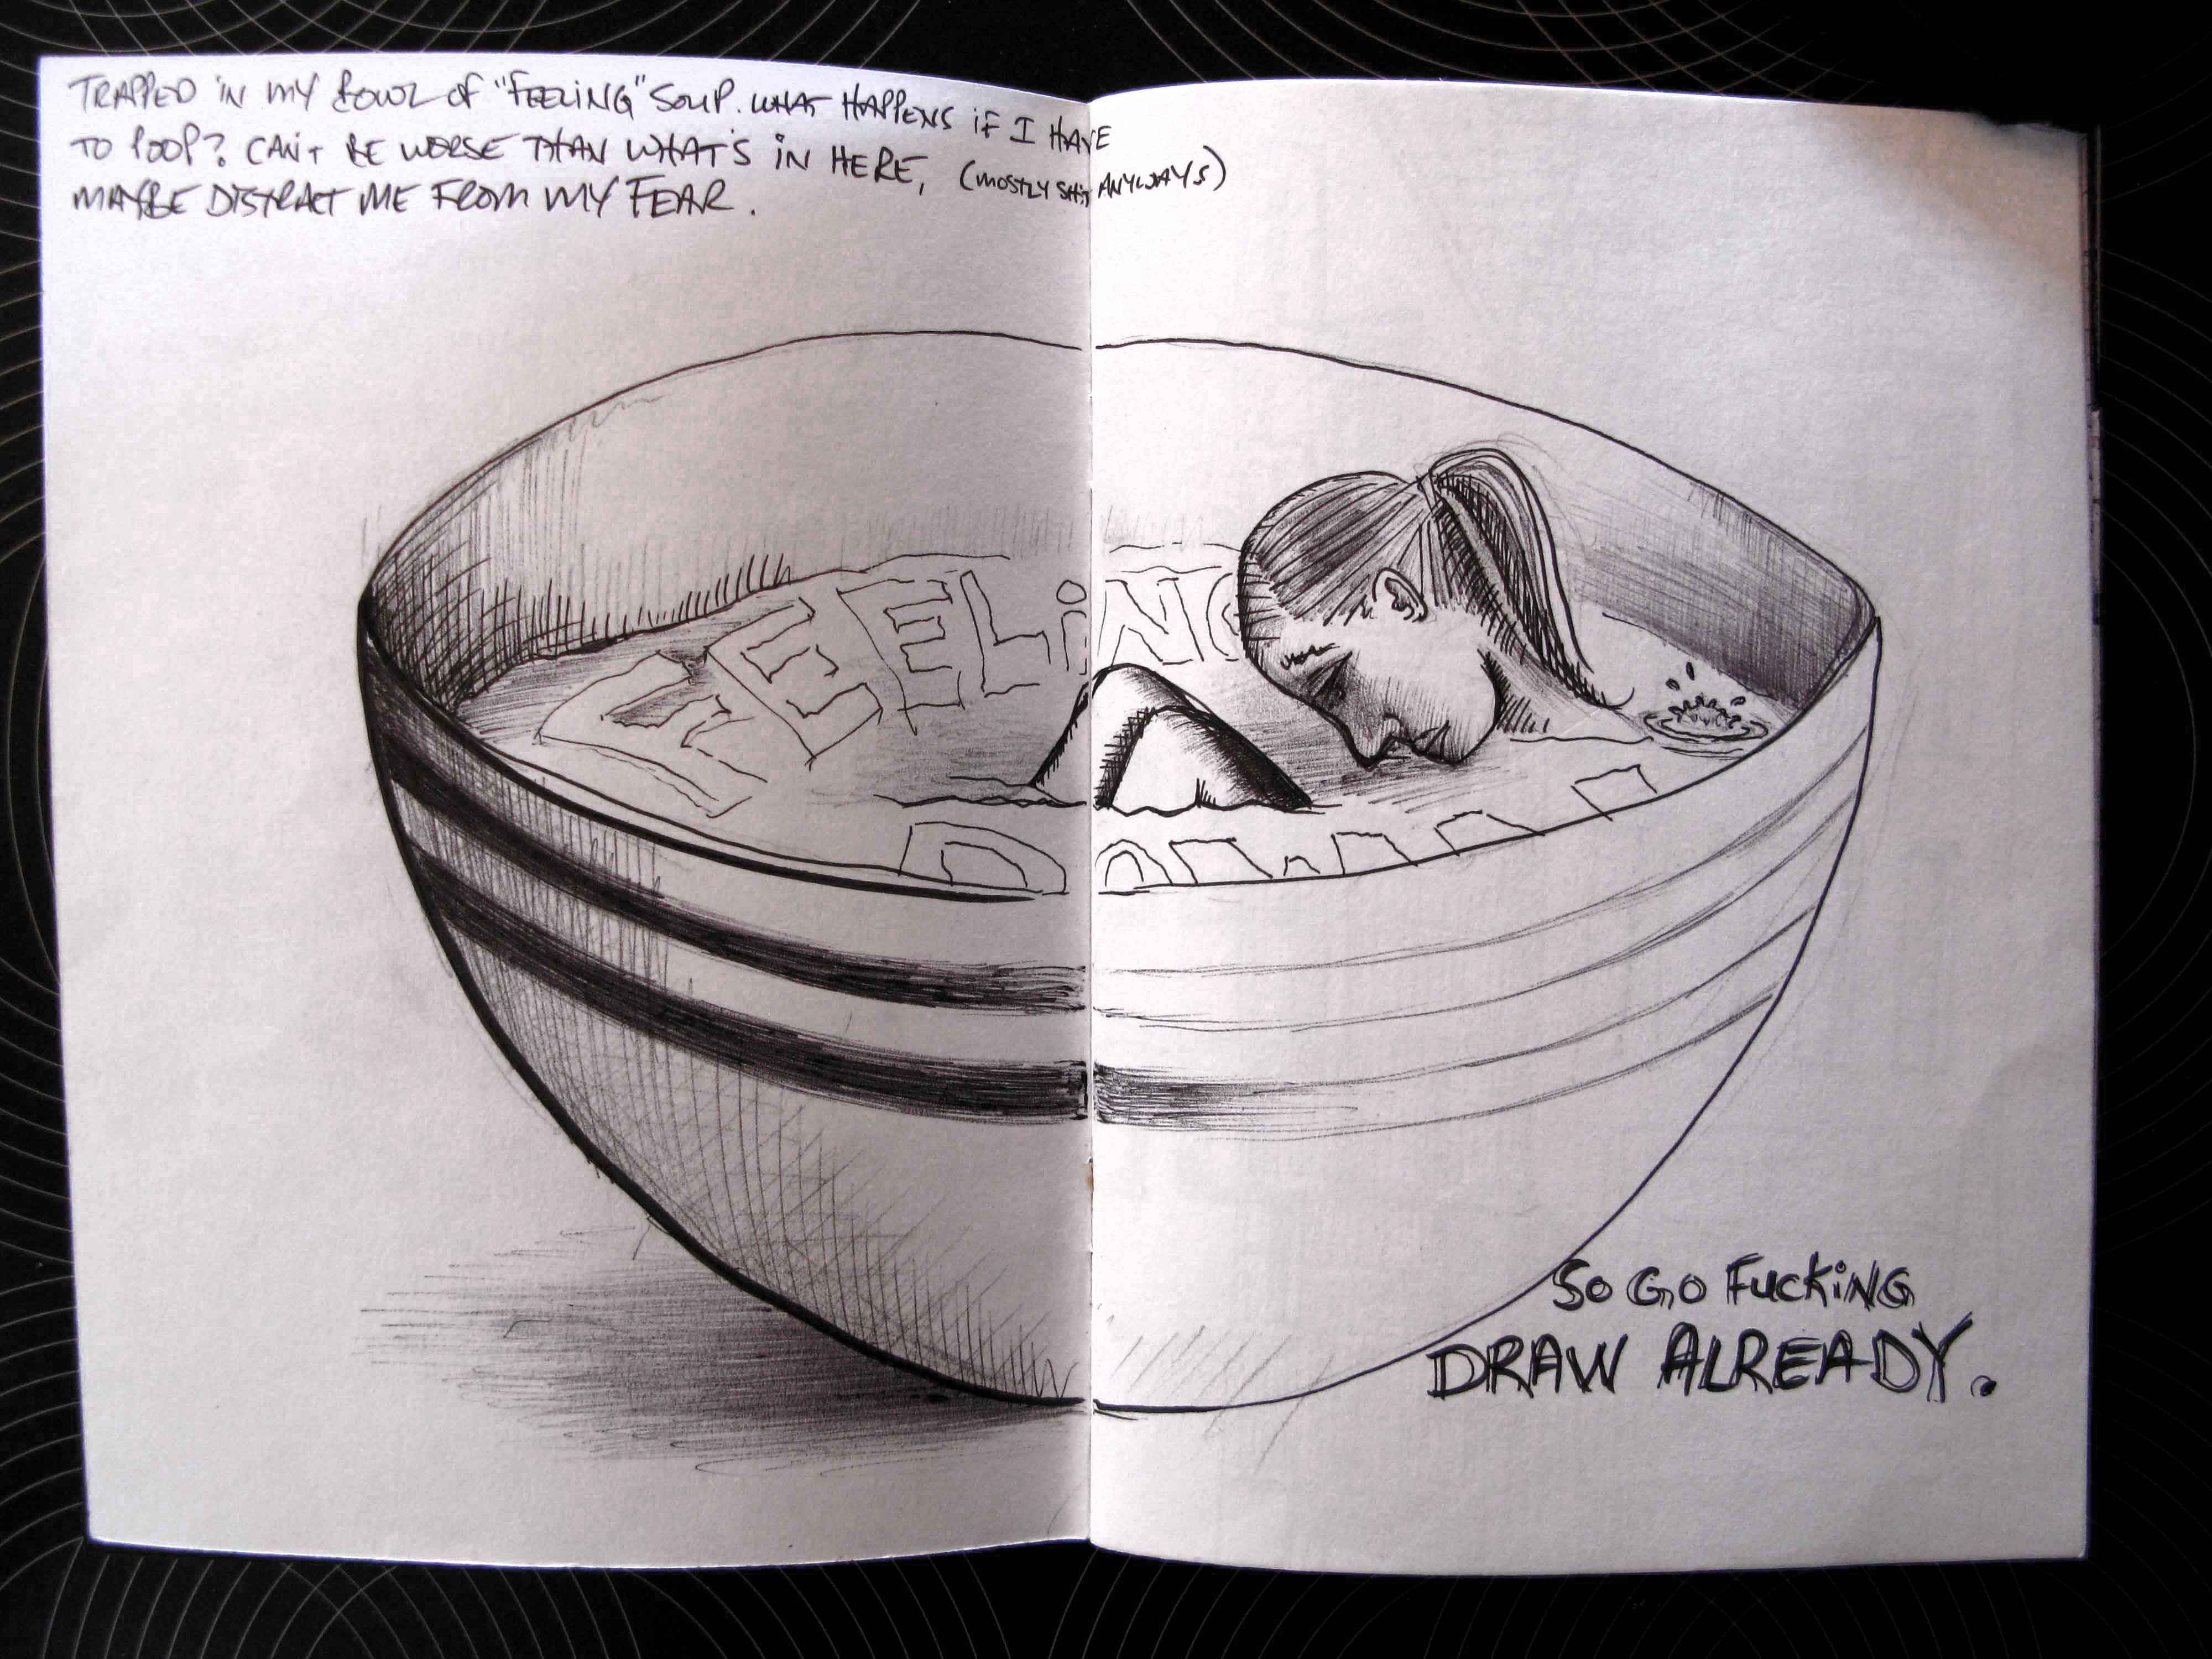 TRAPPED iN MY BOWL OF "FEELiNG" SOUP. WHAT HAPPENS iF I HAVE
TO POOP? CAN'T BE WORSE THAN WHAT'S iN HERE, (MOSTLY SHiT ANYWAYS)
MAYBE DISTRACT ME FROM MY FEAR.
FEELiNG
SO GO FUCKiNG
DRAW ALREADY.